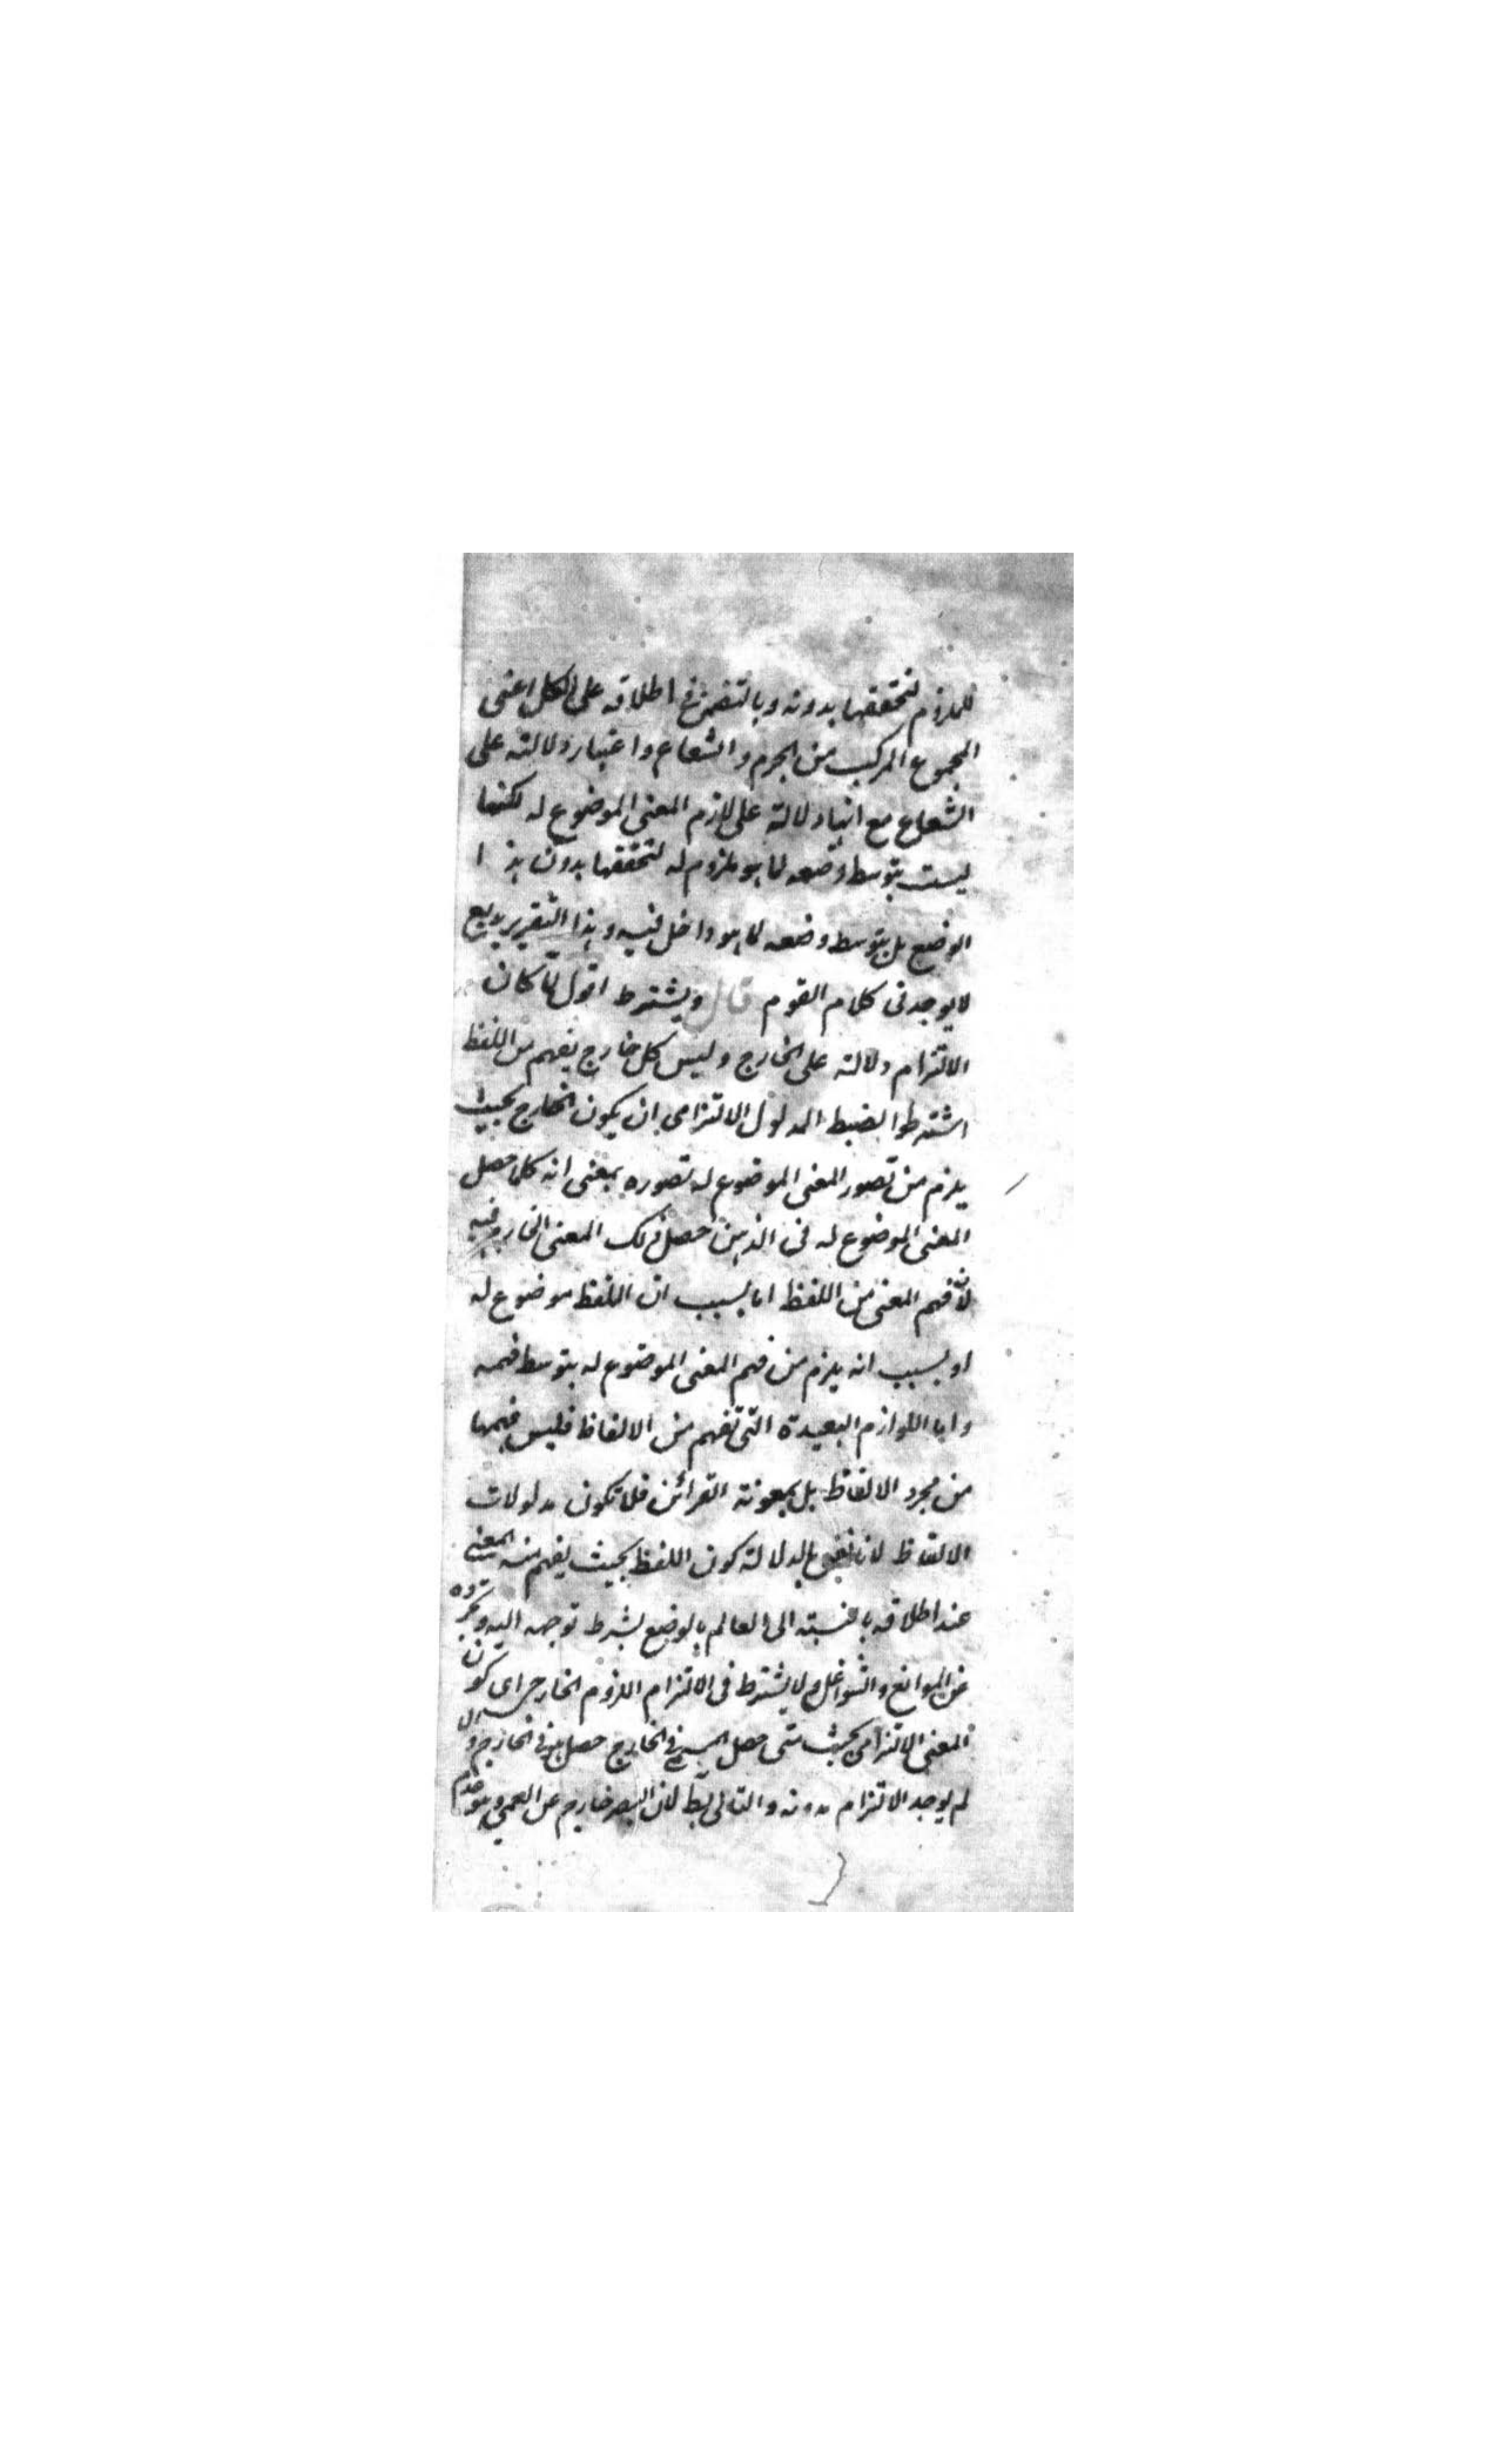 للملزوم لتحققها بدونه وبالتضمن في اطلاقه على الكل اعنى
المجموع المركب من الجرم والشعاع واعتبار دلالته على
الشعاع مع انها دلالة على لازم المعنى الموضوع له لكنها
ليست بتوسط وضعه لما هو ملزوم له لتحققها بدون هذا
الوضع بل بتوسط وضعه لما هو داخل فيه وهذا التقرير بديع
لا يوجد فى كلام القوم قال ويشترط اقول لما كان
الالتزام دلالته على الخارج وليس كل خارج يفهم من اللفظ
اشترطوا لضبط المدلول الالتزامى ان يكون الخارج بحيث
يلزم من تصور المعنى الموضوع له تصوره بمعنى انه كلما حصل
المعنى الموضوع له فى الذهن حصل ذلك المعنى الخارج فيه
لان فهم المعنى من اللفظ اما بسبب ان اللفظ موضوع له
او بسبب انه يلزم من فهم المعنى الموضوع له بتوسط فهمه
واما اللوازم البعيدة التى تفهم من الالفاظ فليس فهمها
من مجرد الالفاظ بل بمعونة القرائن فلا تكون مدلولات
الالفاظ لانا نعنى بالدلالة كون اللفظ بحيث يفهم منه المعنى
عند اطلاقه بالنسبته الى العالم بالوضع بشرط توجهه اليه وتجرده
عن الموانع والشواغل ولا يشترط فى الالتزام اللزوم الخارجى اى كون
المعنى الالتزامى بحيث متى حصل المسمى فى الخارج حصل هو فى الخارج والا
لم يوجد الالتزام بدونه والتالى بط لان البصر خارج عن العمى وهو عدم